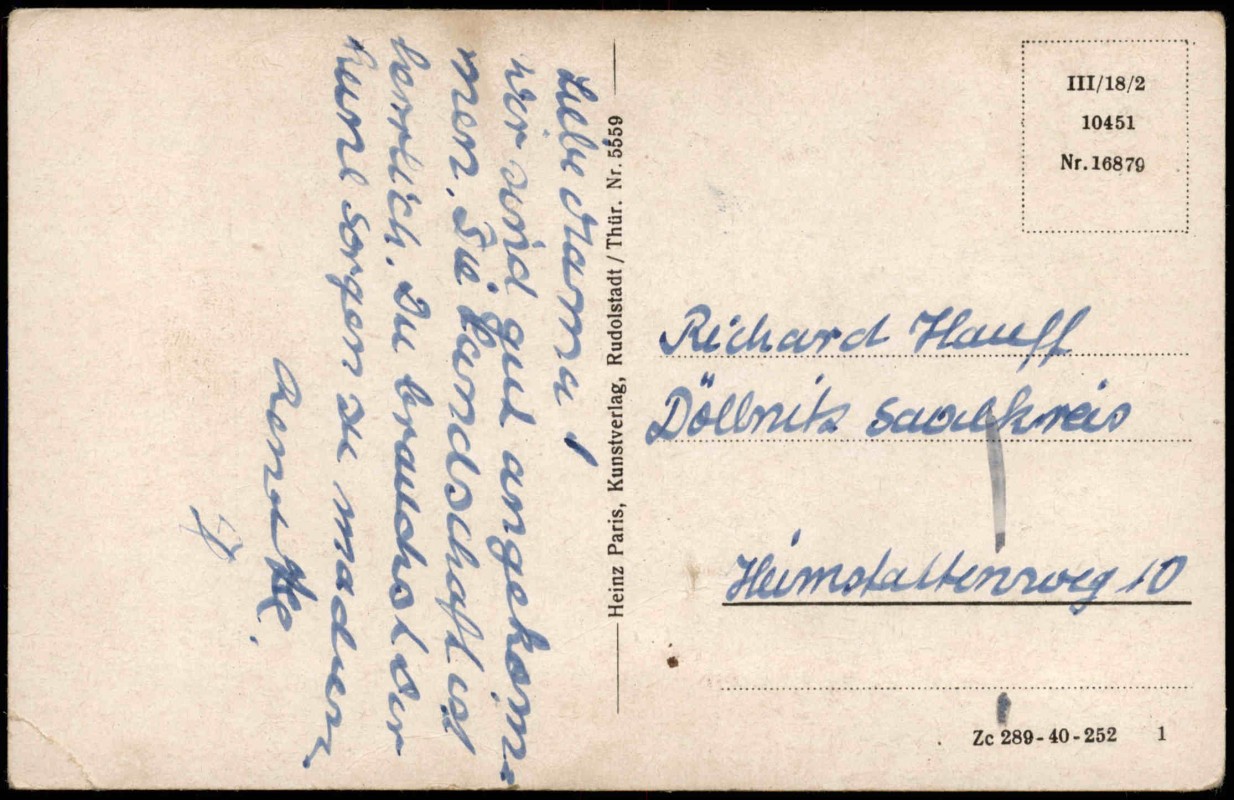 Liebe Mama!
wir sind gut angekom-
men. Die Landschaft ist
herrlich. Du brauchst Dir
keine sorgen zu machen,
Heinz Paris, Kunstverlag, Rudolstadt / Thür. Nr. 5559
III/18/2
10451
Nr. 16879
Richard Hauff
Döllnitz Saalkreis
Heimstättenweg 10
Zc 289-40-252 1